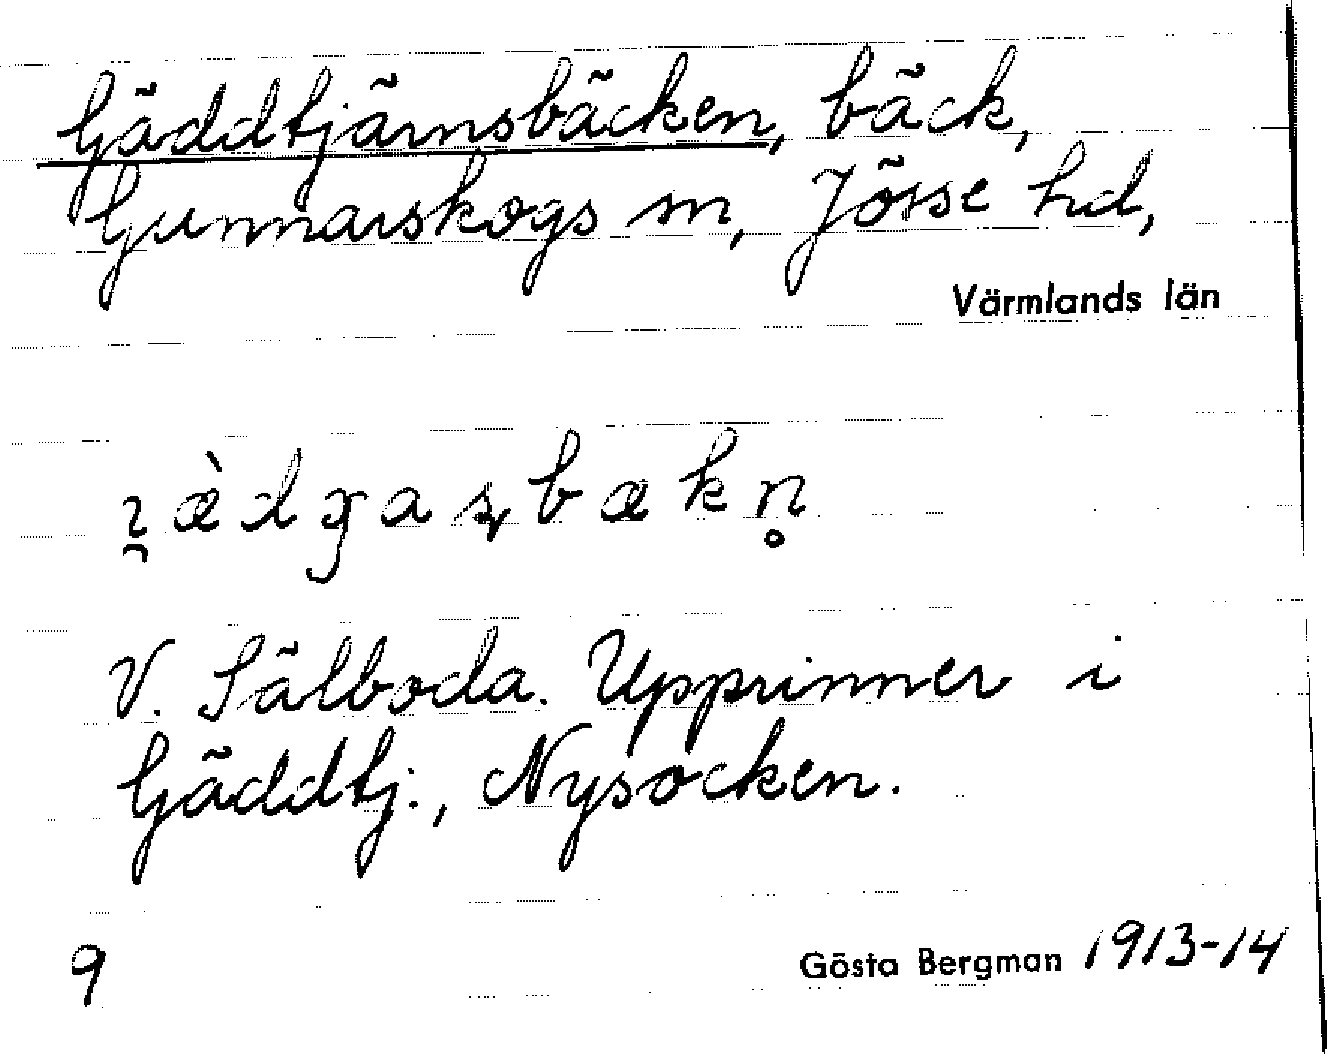 Gäddtjärnsbäcken, bäck,
Gunnarskogs sn, Jösse hd,
Värmlands län
V. Sälboda. Upprinner i
Gäddtj., Nysocken.
9
Gösta Bergman 1913-14